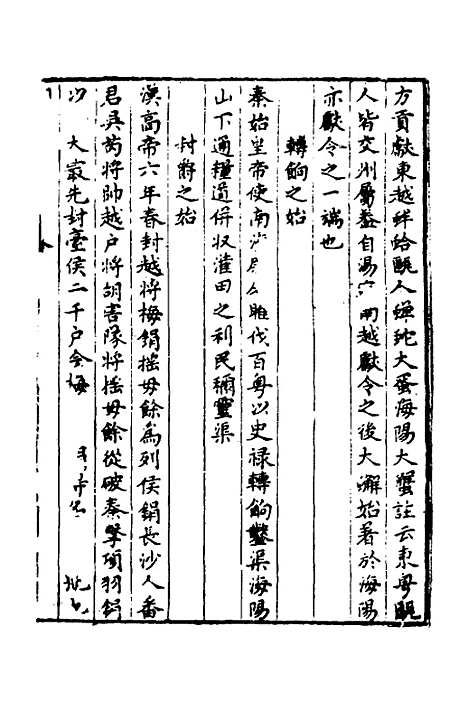 方貢獻東越蛘蛤甌人蟬蛇大蜃海陽大蟹註云東粤甌
人皆交州屬蓋自湯 南越獻令之後大澥始著於海陽
亦獻令之一端也
轉餉之始
秦始皇帝使南 睢伐百粤以史禄轉餉鑿渠海陽
山下通糧道併収灌田之利民穪靈渠
封爵之始
漢高帝六年春封越將梅鋗揺毋餘爲列侯鋗長沙人番
君吳芮將帥越户將胡害隊將揺毋餘從破秦擊項羽鋗
大 先封臺侯二千户 海